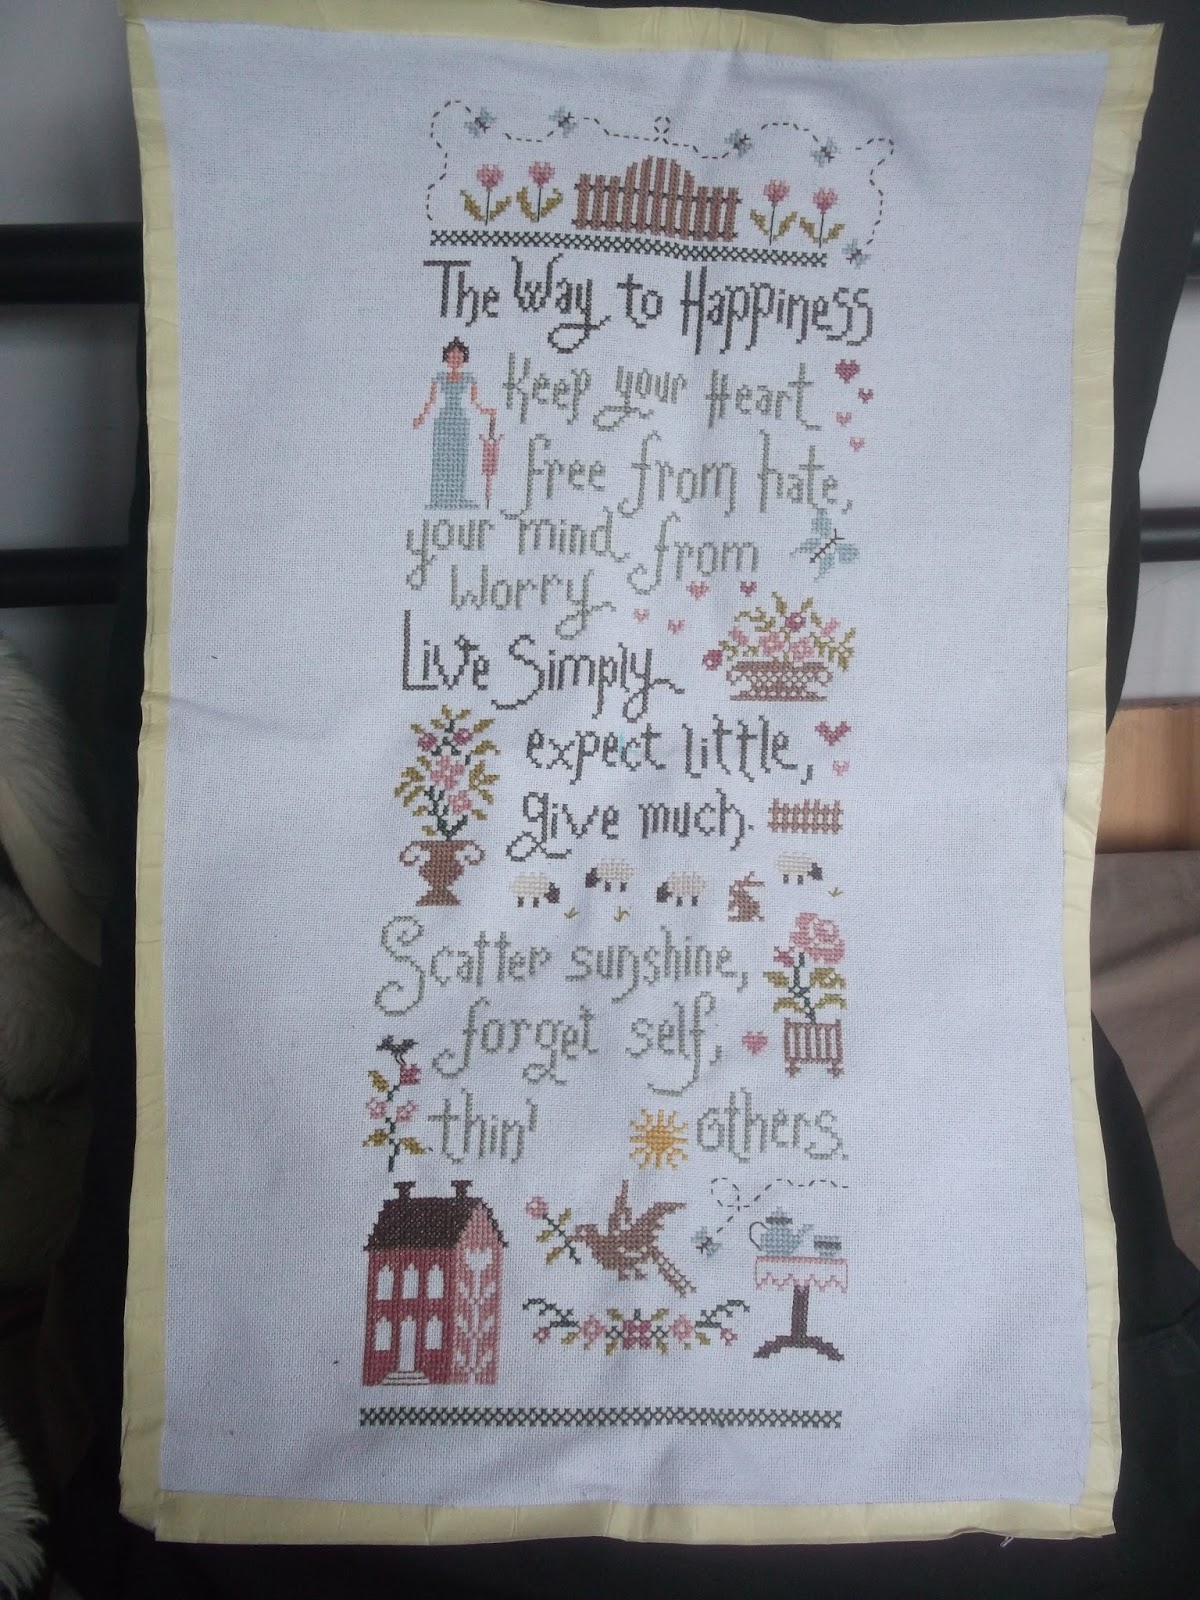 The Way to Happiness
Keep your Heart
free from hate,
your mind from
Worry
Live Simply
expect little,
give much.
Scatter sunshine,
forget self,
thin' others.